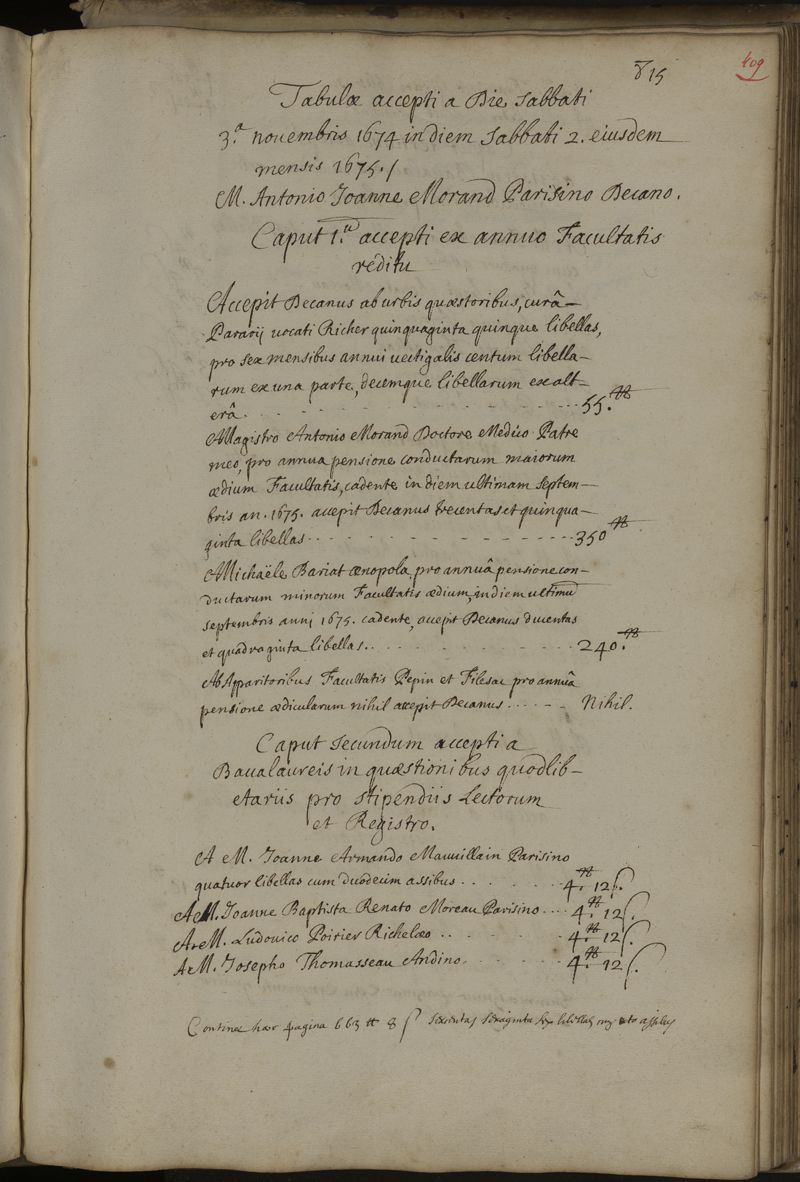 815
409
Tabulæ accepti a Die Sabbati
3.ª novembris 1674 in diem Sabbati 2. eiusdem
mensis 1675./
M. Antonio Joanne Morand Parisino Decano.
Caput 1.um accepti ex annuo Facultatis
reditu
Accepit Decanus ab urbis quæstoribus, curâ
Pararij vocati Richer quinquaginta quinque libellas,
pro sex mensibus annui vectigalis centum libella-
rum ex una parte, decemque libellarum ex alt-
erâ. 55.tt
Magistro Antonio Morand Doctore Medico Patre
meo, pro annua pensione conductarum maiorum
ædium Facultatis, cadente in diem ultimam septem-
bris an. 1675. accepit Decanus trecentas et quinqua-
ginta libellas 350tt
Michaële Bariat œnopola, pro annuâ pensione con-
ductarum minorum Facultatis ædium, in diem ultimū
septembris anni 1675. cadente, accepit Decanus ducentas
et quadraginta libellas. 240.tt
Ab Apparitoribus Facultatis Pepin et Filesac pro annuâ
pensione ædicularum nihil accepit Decanus Nihil.
Caput Secundum accepti a
Baccalaureis in quæstionibus quodlib-
etariis pro stipendiis Lectorum
et Registro.
A M. Joanne Armando Mauvillain Parisino
quatuor libellas cum duodecim assibus 4.tt 12ſ.
A M. Joanne Baptista Renato Moreau Parisino 4.tt 12ſ.
A M. Ludovico Poirier Richelæo 4.tt 12ſ.
A M. Josepho Thomasseau Andino. 4.tt 12ſ.
Continet hæc pagina 663 tt 8 ſ sexcentas sexaginta libellas octo asses